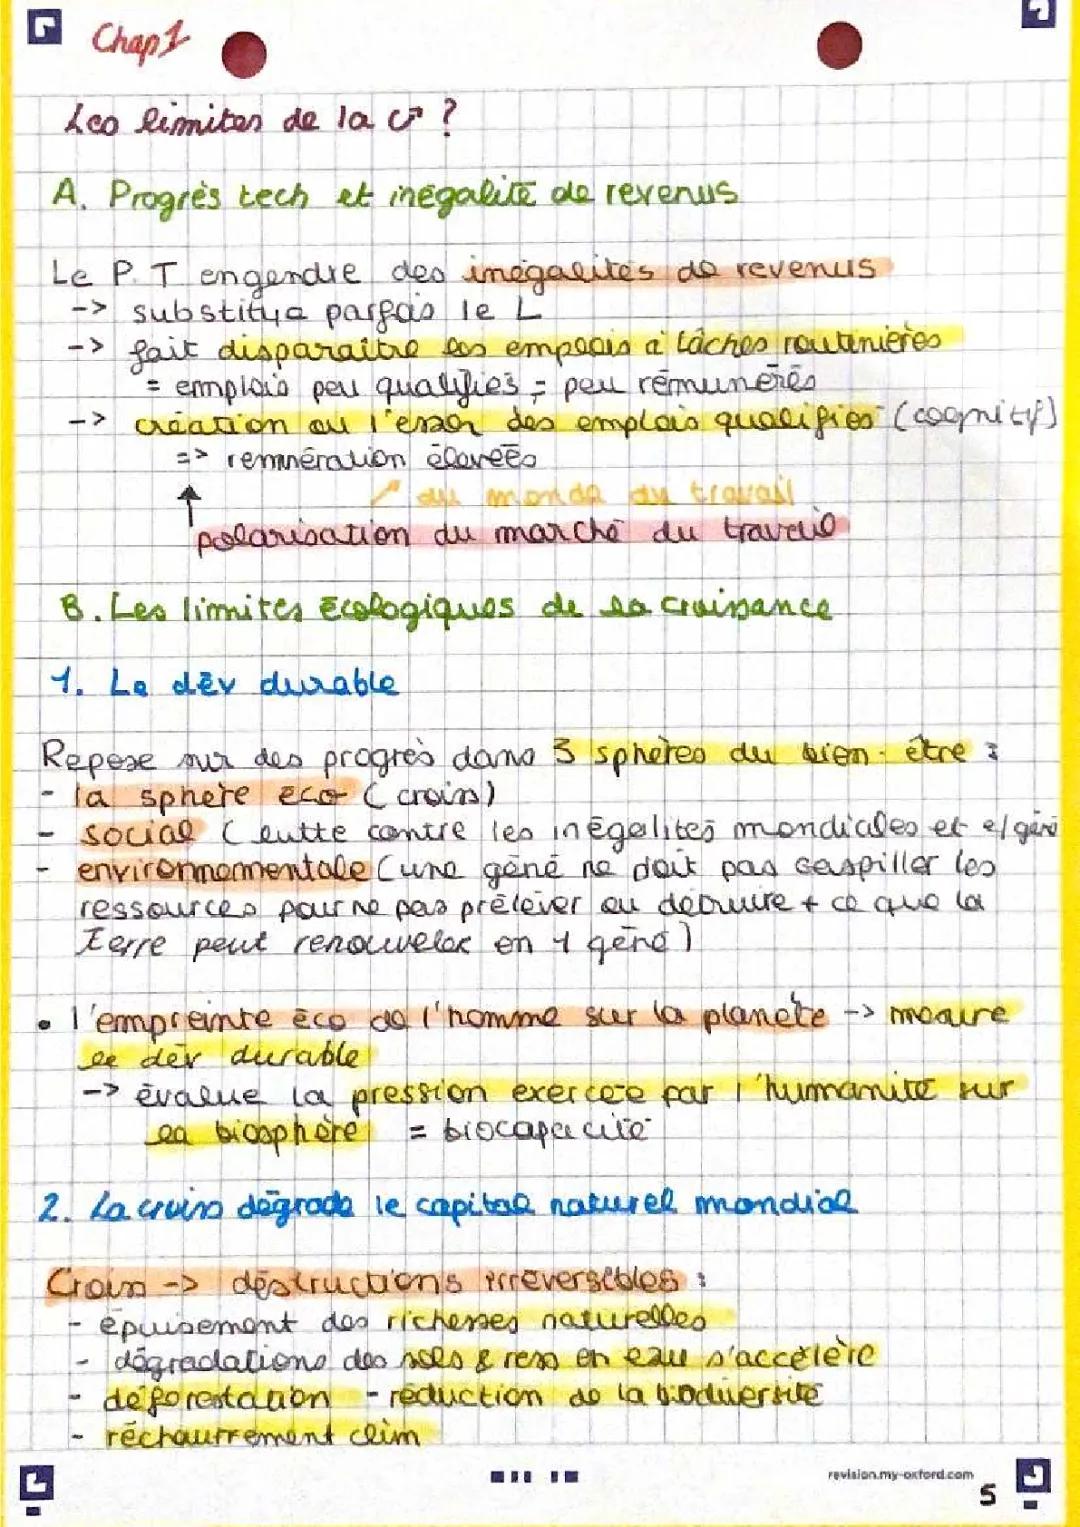 Chap 1
Les limites de la c↗ ?
A. Progrès tech et inégalité de revenus
Le P.T engendre des inégalités de revenus
-> substitue parfois le L
-> fait disparaître les emplois à tâches routinières
= emplois peu qualifiés = peu rémunérés
-> création ou l'essor des emplois qualifiés (cognitif)
=> remnération élevées
↗ du monde du travail
↑ polarisation du marché du travail
B. Les limites écologiques de la croissance
1. Le dév durable
Repose sur des progrès dans 3 sphères du bien-être :
- la sphère éco (croiss)
- social (lutte contre les inégalités mondiales et e/ géné
- environnementale (une géné ne doit pas gaspiller les
ressources pour ne pas prélever ou détruire + ce que la
Terre peut renouveler en 1 géné)
• l'empreinte éco de l'homme sur la planète -> mesure
le dév durable
-> évalue la pression exercée par l'humanité sur
la biosphère = biocapacité
2. La croiss dégrade le capital naturel mondial
Croiss -> déstructions irréversibles :
- épuisement des richesses naturelles
- dégradations des sols & ress en eau s'accélère
- déforestation - réduction de la biodiversité
- réchauffement clim
revision.my-oxford.com
5